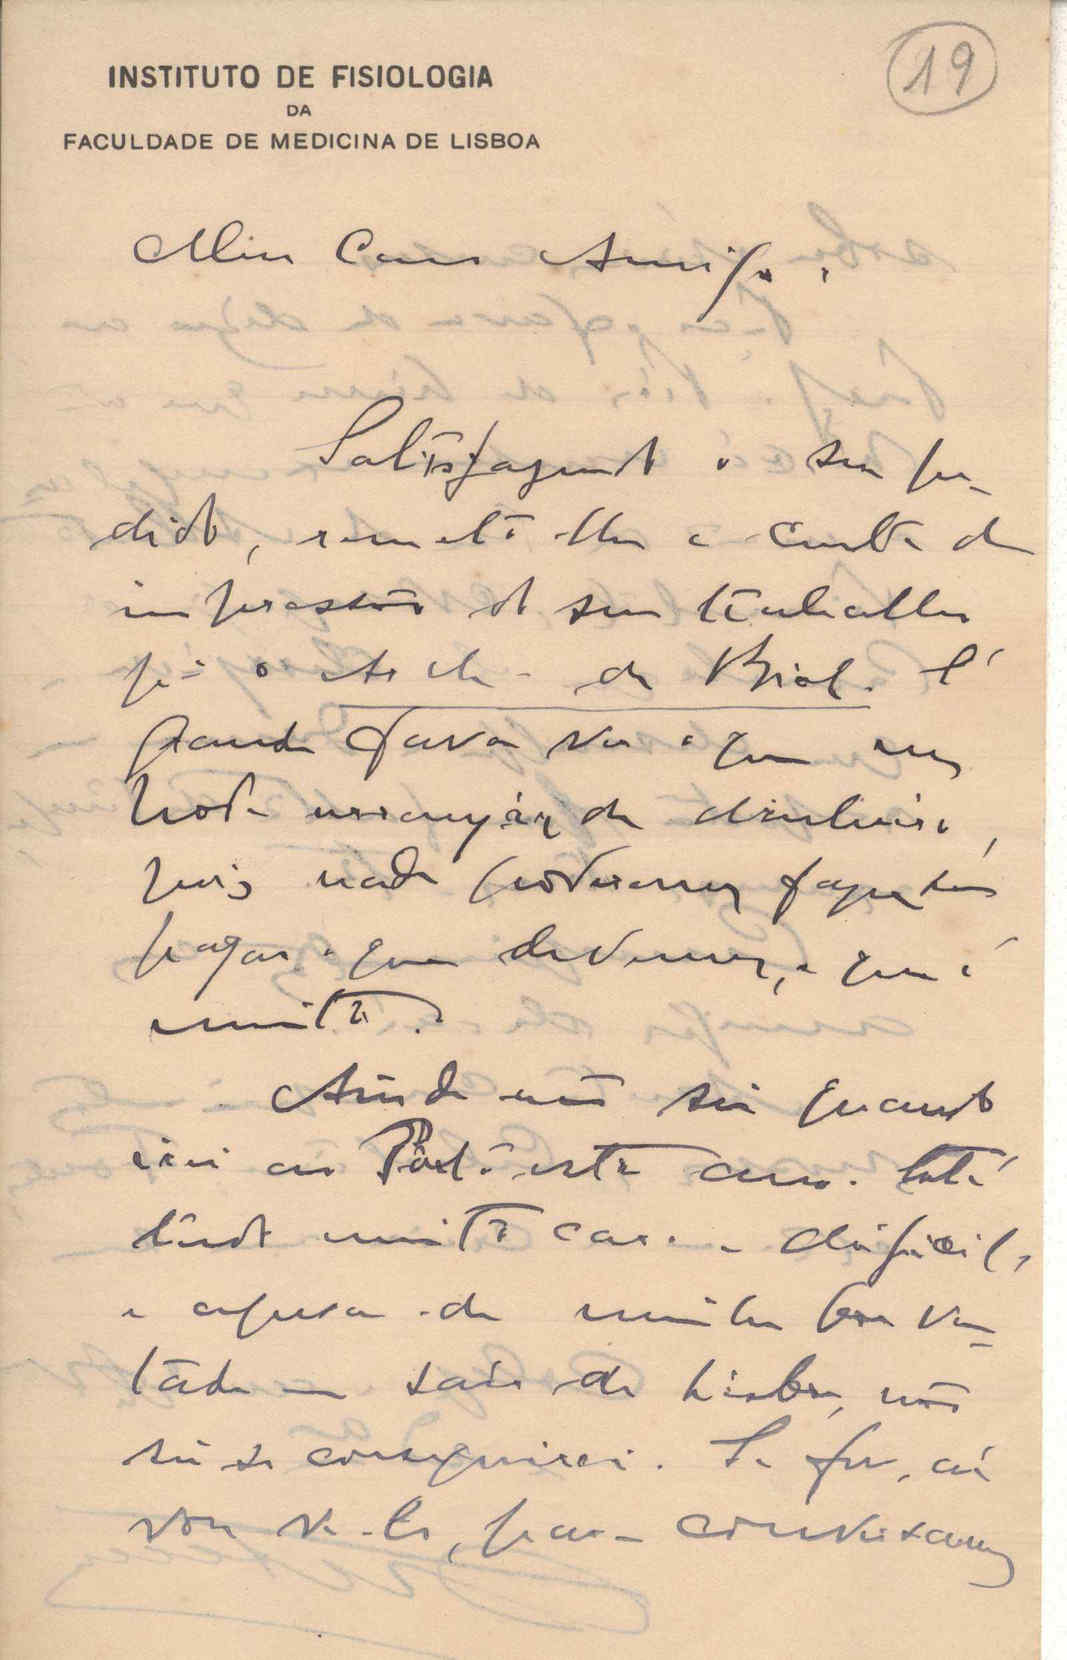 INSTITUTO DE FISIOLOGIA
DA
FACULDADE DE MEDICINA DE LISBOA
19
Meu Caro Amigo,
Satisfazendo o seu pe-
dido, remeto-lhe a conta da
impressão do seu trabalho
pª o Arch. de Biol. É
grande favor ver o que nos
pode arranjar de dinheiro,
pois nada poderemos fazer sem
pagar o que devemos, e que é
muito.
Ainda não sei quando
irei ao Porto este ano. Está
tudo muito caro e difícil,
e apesar de minha boa von-
tade em sair de Lisboa, não
sei se conseguirei. Se for, aí
vou vê-lo, para conversarmos